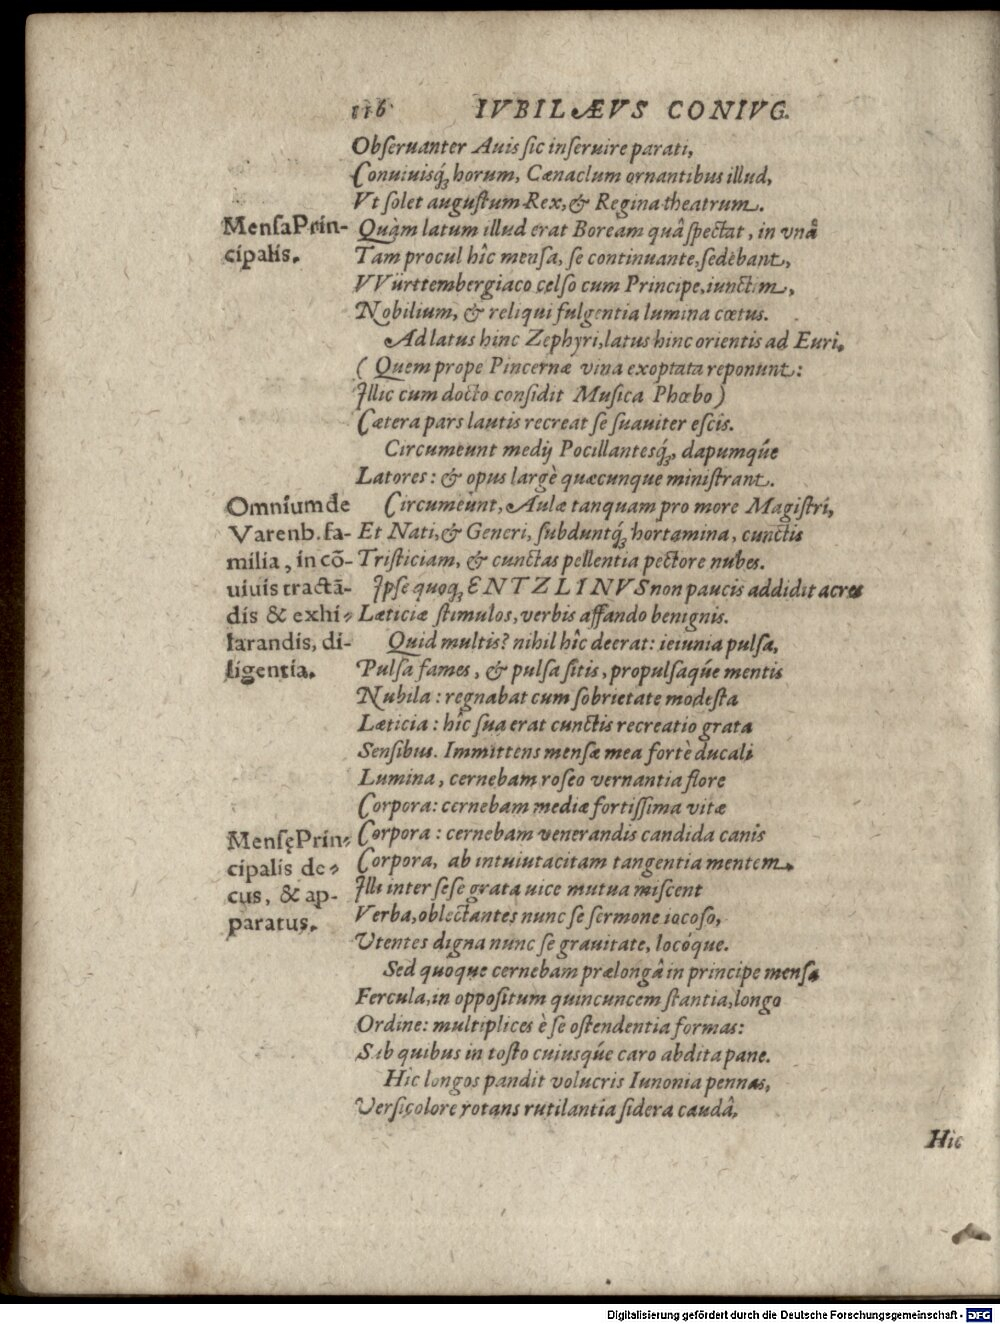 116 IVBILÆVS CONIVG.
Obſeruanter Auis ſic inſeruire parati,
Conuiuisq́ꝫ horum, Cænaclum ornantibus illud,
Vt ſolet auguſtum Rex, & Regina theatrum.
MenſaPrin-
cipalis.
Quàm latum illud erat Boream quâ ſpectat, in vnâ
Tam procul hîc menſa, ſe continuante, ſedebant,
VVürttembergiaco celſo cum Principe, iunctim,
Nobilium, & reliqui fulgentia lumina cœtus.
Ad latus hinc Zephyri, latus hinc orientis ad Euri,
( Quem prope Pincernæ vina exoptata reponunt:
Illic cum docto conſidit Muſica Phœbo )
Cætera pars lautis recreat ſe ſuauiter eſcis.
Circumeunt medij Pocillantesq́ꝫ, dapumqúe
Latores: & opus largè quæcunque miniſtrant.
Omnium de
Varenb. fa-
milia, in cō-
uiuis tractā-
dis & exhi-
larandis, di-
ligentia.
Circumeunt, Aulæ tanquam pro more Magiſtri,
Et Nati, & Generi, ſubduntq́ꝫ hortamina, cunctis
Triſticiam, & cunctas pellentia pectore nubes.
Ipſe quoqꝫ ENTZLINVS non paucis addidit acres
Læticiæ ſtimulos, verbis affando benignis.
Quid multis? nihil hîc deerat: ieiunia pulſa,
Pulſa fames, & pulſa ſitis, propulſaqúe mentis
Nubila: regnabat cum ſobrietate modeſta
Læticia: hîc ſua erat cunctis recreatio grata
Senſibus. Immittens menſæ mea fortè ducali
Lumina, cernebam roſeo vernantia flore
Corpora: cernebam mediæ fortiſſima vitæ
MenſęPrin-
cipalis de-
cus, & ap-
paratus.
Corpora: cernebam venerandis candida canis
Corpora, ab intuiu tacitam tangentia mentem.
Illi inter ſeſe grata uice mutua miſcent
Verba, oblectantes nunc ſe ſermone iocoſo,
Vtentes digna nunc ſe grauitate, locóque.
Sed quoque cernebam prælongâ in principe menſa
Fercula, in oppoſitum quincuncem ſtantia, longo
Ordine: multiplices è ſe oſtendentia formas:
Sub quibus in toſto cuiusqúe caro abdita pane.
Hic longos pandit volucris Iunonia pennas,
Verſicolore rotans rutilantia ſidera caudâ,
Hic
Digitalisierung gefördert durch die Deutsche Forschungsgemeinschaft - DFG